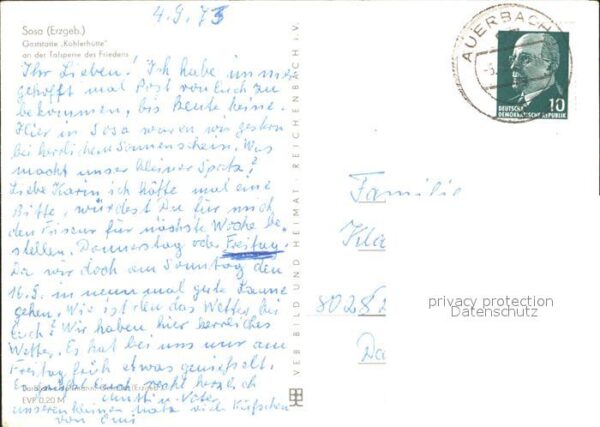 4.9.73
Sosa (Erzgeb.)
Gaststätte „Köhlerhütte"
an der Talsperre des Friedens
Ihr Lieben! Ich habe immer
gehofft mal Post von Euch zu
bekommen, bis heute keine.
Hier in Sosa waren wir gestern
bei herrlichem Sonnenschein. Was
macht unser kleiner Spatz?
Liebe Karin ich hätte mal eine
Bitte, würdest Du für mich
den Friseur für nächste Woche be-
stellen. Donnerstag oder Freitag.
Da wir doch am Sonntag den
16.9. in
gehen. Wie ist den das Wetter bei
Euch? Wir haben hier herrliches
Wetter. Es hat bei uns nur am
Freitag früh etwas genieselt.
Es grüßt Euch recht herzlich
Mutti u. Vater
unseren kleinen Matz viele Küßchen
von Omi
EVP 0,20 M
VEB BILD UND HEIMAT · REICHENBACH i. V.
AUERBACH
DEUTSCHE
DEMOKRATISCHE REPUBLIK
10
Familie
Kla
8028
privacy protection
Datenschutz